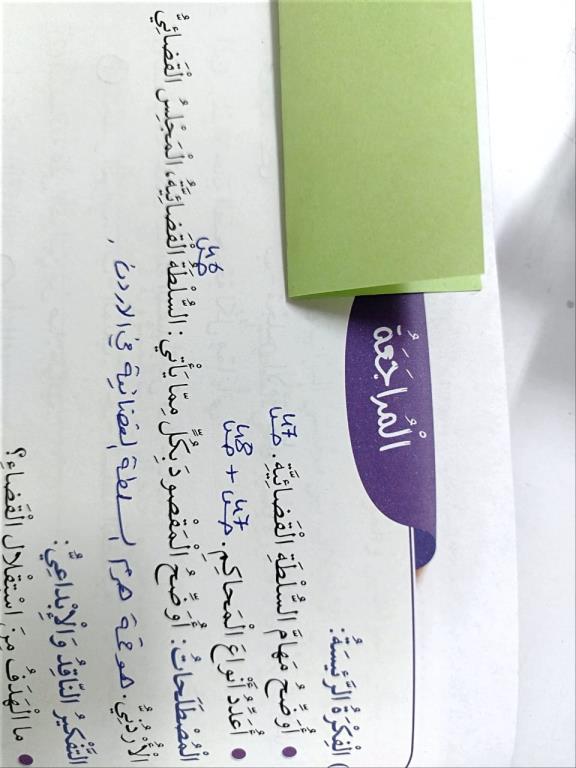 الْمُراجَعَةُ
الْفِكْرَةُ الرَّئيسَةُ:
• أُوَضِّحُ مَهامَّ السُّلْطَةِ الْقَضائِيَّةِ. ص ٤٧
• أُعَدِّدُ أَنْواعَ الْمَحاكِمِ. ص ٤٧ + ص ٤٨
الْمُصْطَلَحاتُ: أُوَضِّحُ الْمَقْصودَ بِكُلٍّ مِمّا يَأْتي: السُّلْطَةُ الْقَضائِيَّةُ، الْمَجْلِسُ الْقَضائِيُّ
ص ٤٦
الْأُرْدُنِّيُّ. هو قمة هرم السلطة القضائية في الاردن.
التَّفْكيرُ النّاقِدُ وَالْإِبْداعِيُّ:
• ما الْهَدَفُ مِنَ اسْتِقْلالِ الْقَضاءِ؟